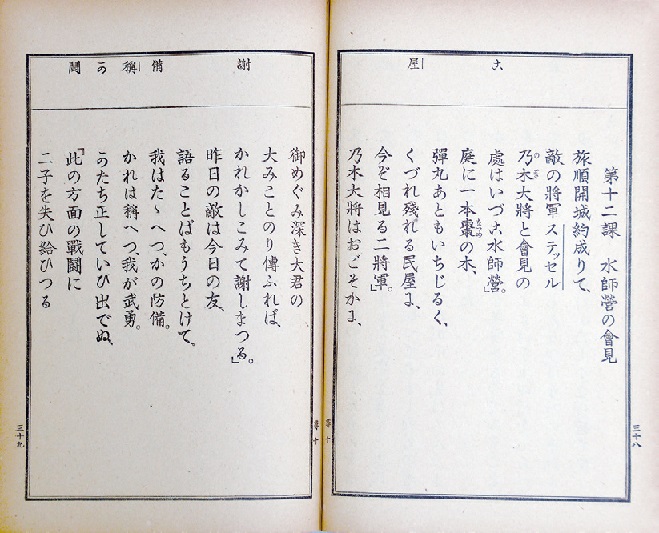 こ
屋
第十二課 水師營の會見
旅順開城約成りて、
敵の將軍ステッセル
乃木大將と會見の
のぎ
處はいづこ、水師營。
庭に一本棗の木、
なつめ
彈丸あともいちじるく、
くづれ殘れる民屋に、
今ぞ相見る二將軍。」
乃木大將はおごそかに、
三十八
謝
備
稱
か
闘
御めぐみ深き大君の
大みことのり傳ふれば、
かれかしこみて謝しまつる。」
昨日の敵は今日の友、
語ることばもうちとけて。
我はたゝへつ、かの防備。
かれは稱へつ、我が武勇。
かたち正していひ出でぬ、
『此の方面の戰闘に
二子を失ひ給ひつる
三十九